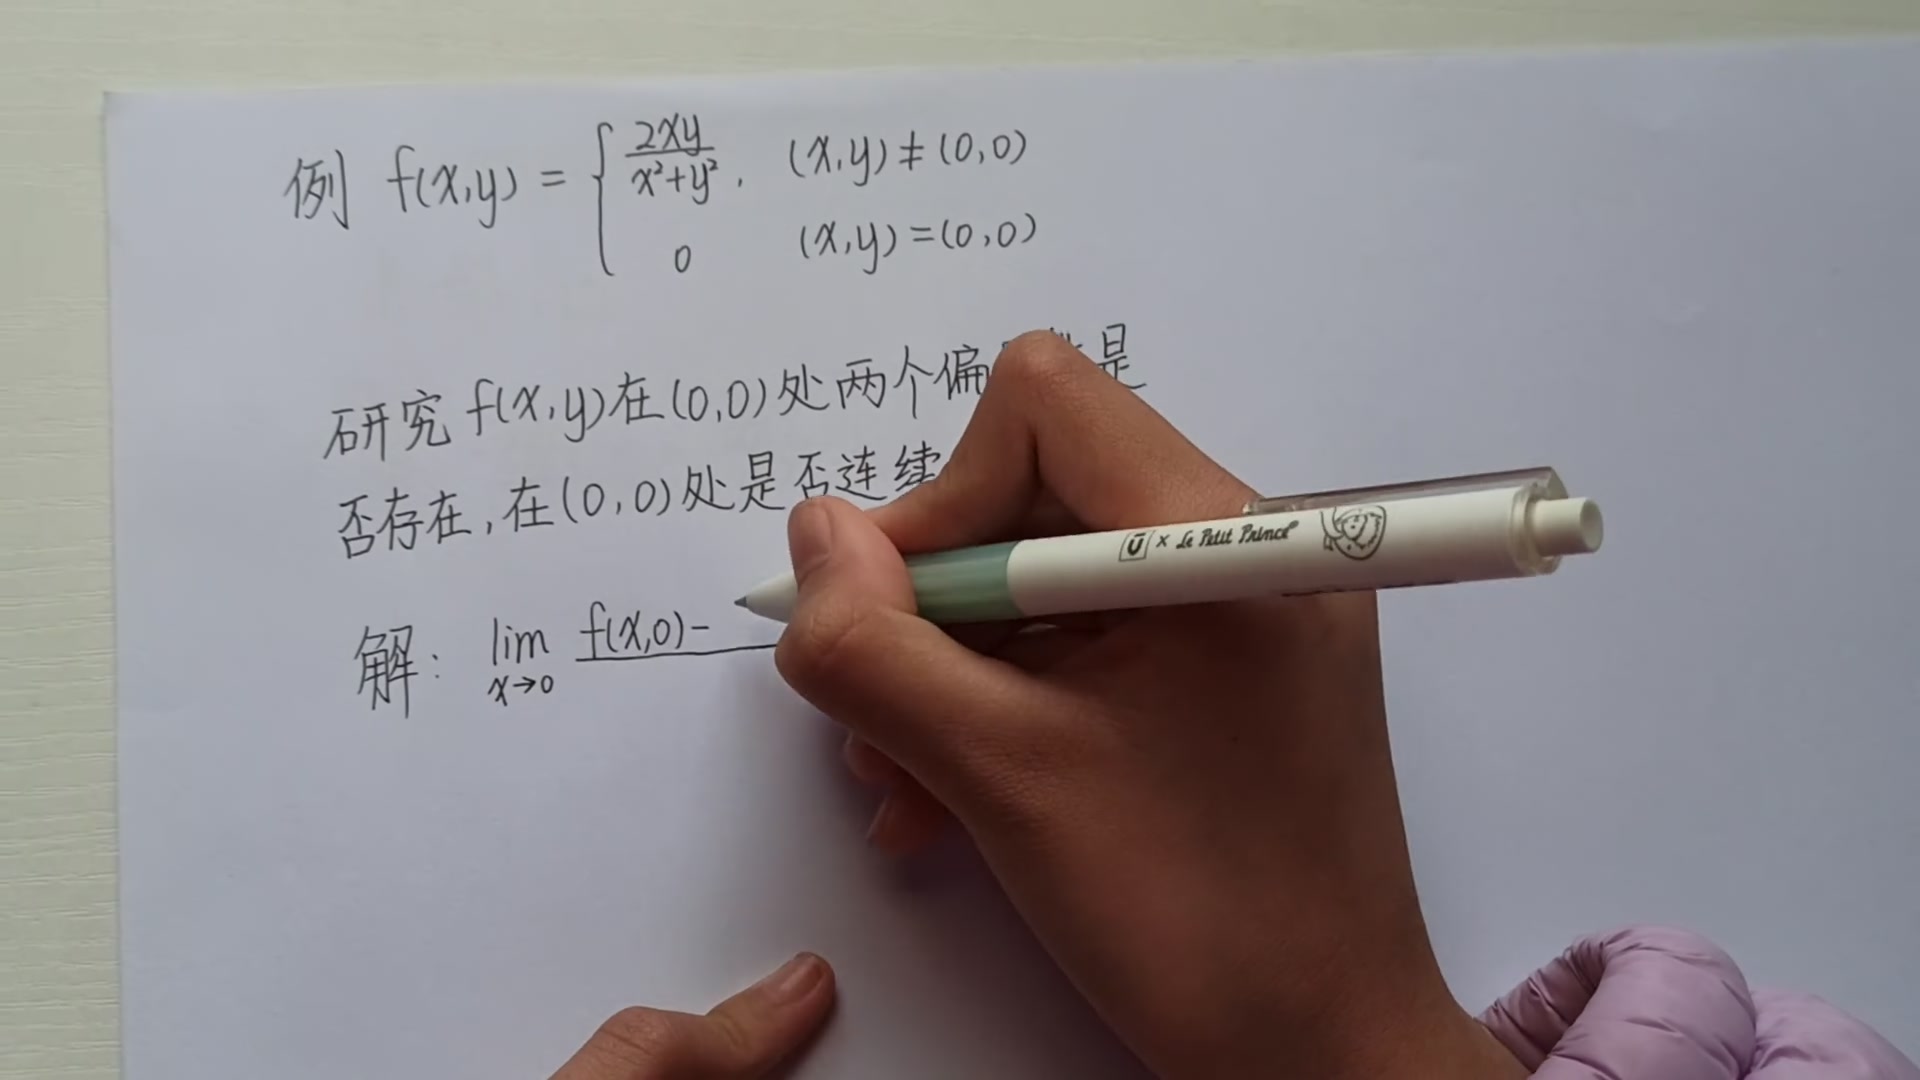 例 f(x,y) = { 2xy/x²+y², (x,y) ≠ (0,0)
0 (x,y) = (0,0)
研究 f(x,y) 在 (0,0) 处两个偏 是
否存在, 在 (0,0) 处是否连续
解: lim x→0 f(x,0) -
Ū × Le Petit Prince